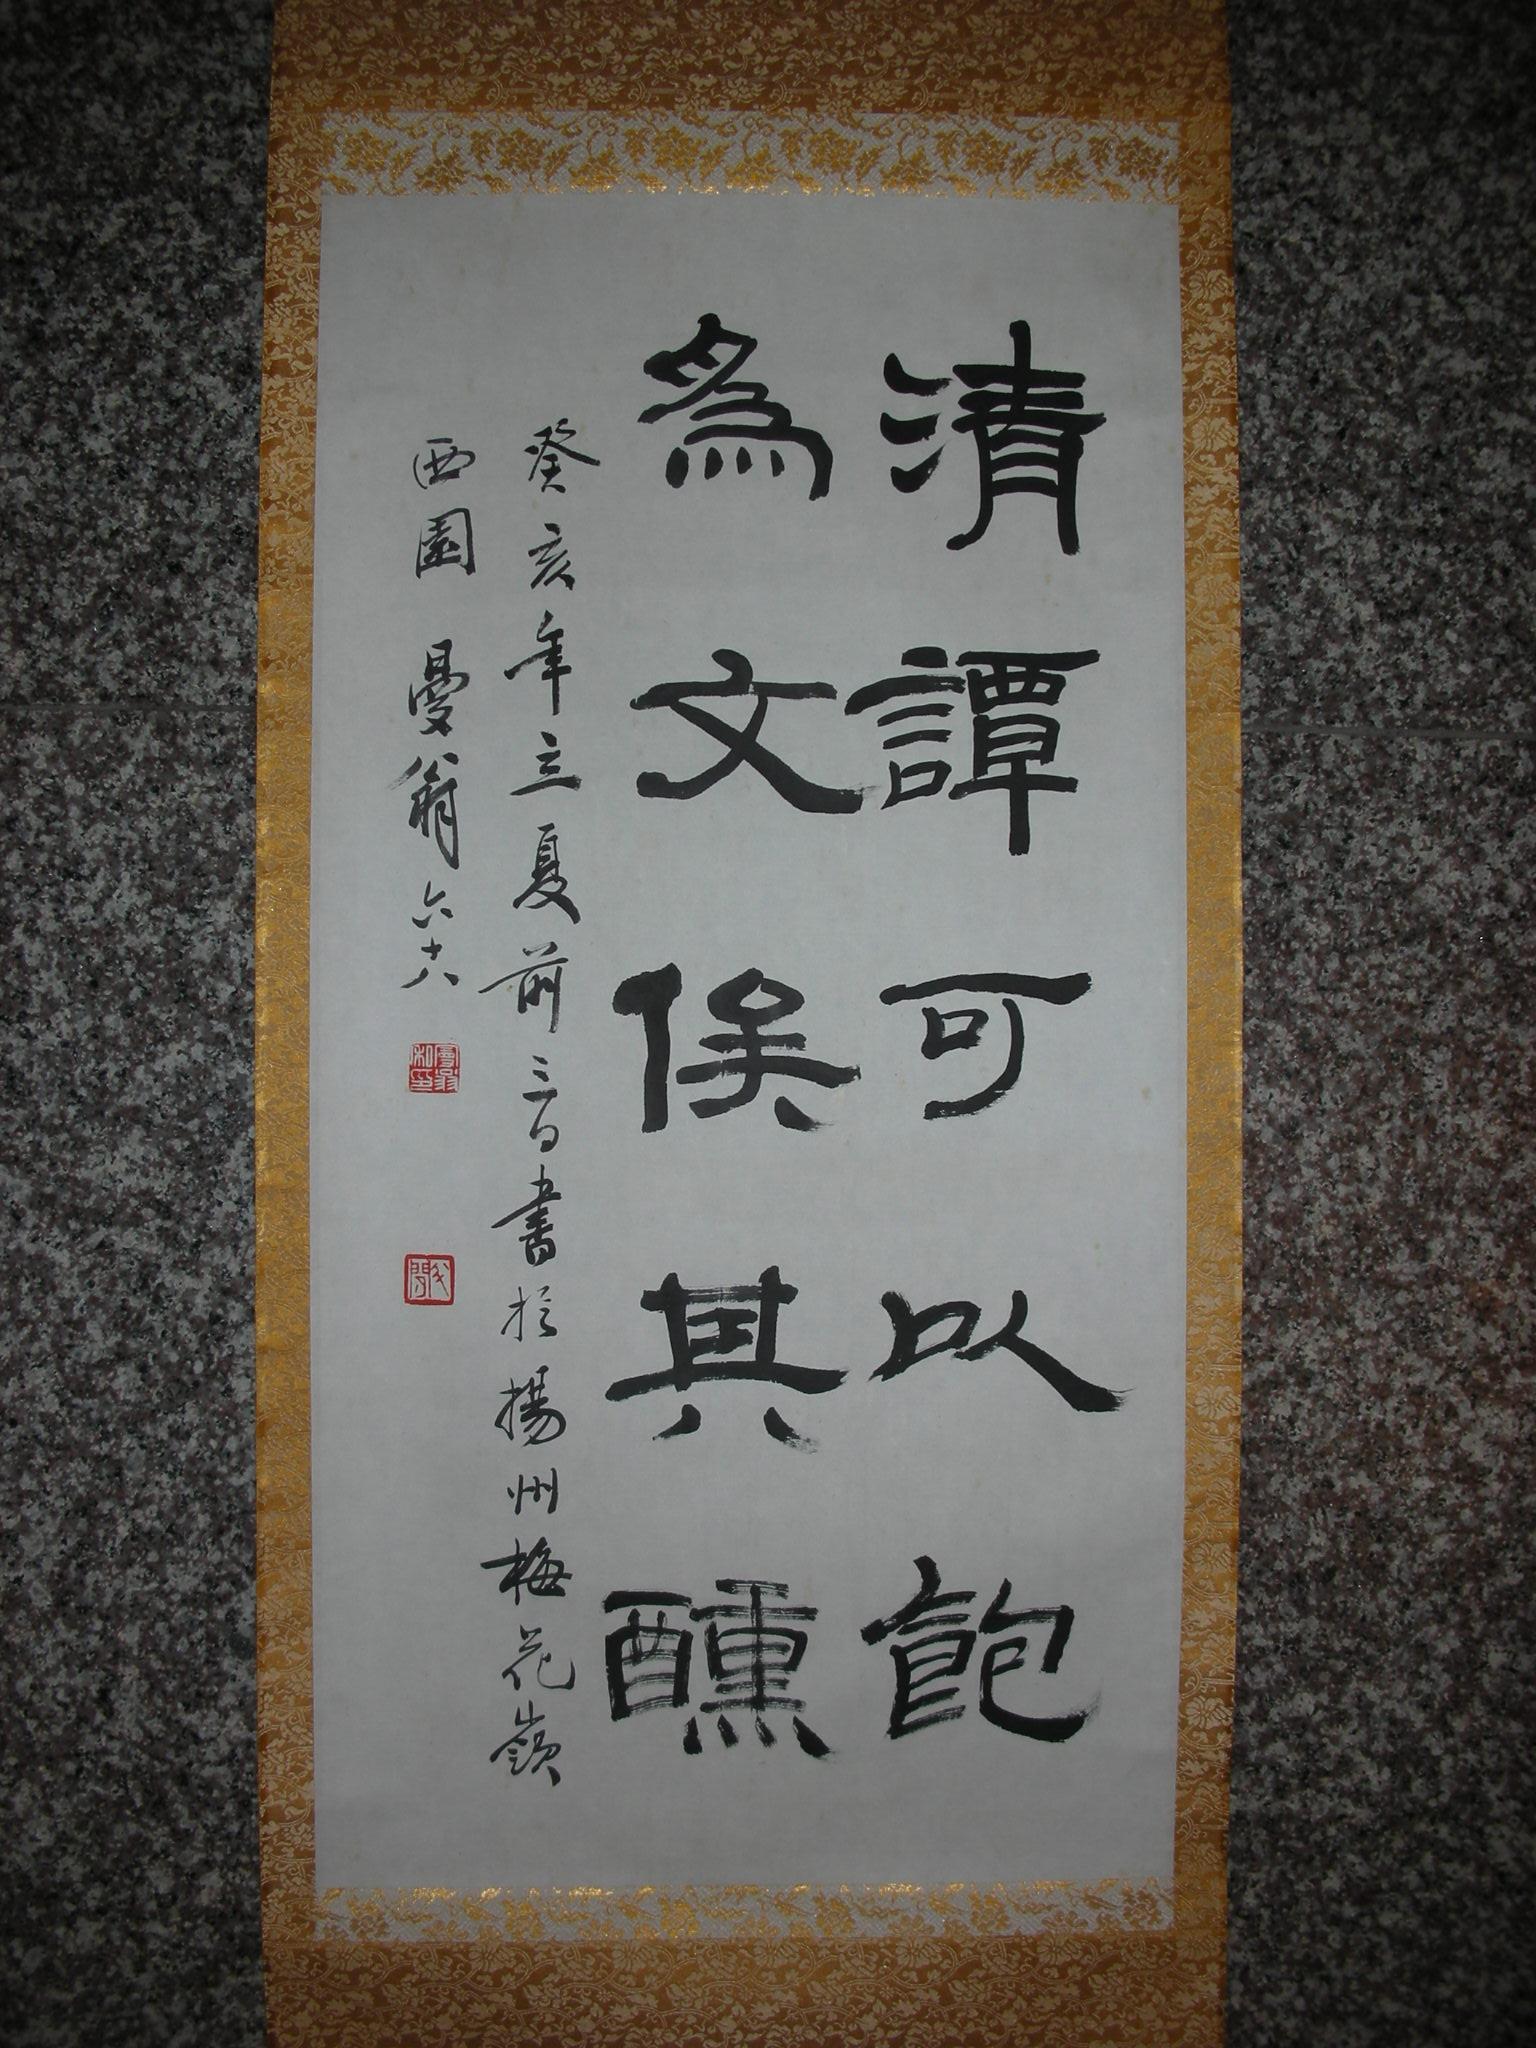 清譚可以飽
為文俟其醺
癸亥年立夏前三日書於揚州梅花嶺
西園 曼翁六十八
曼翁
和印